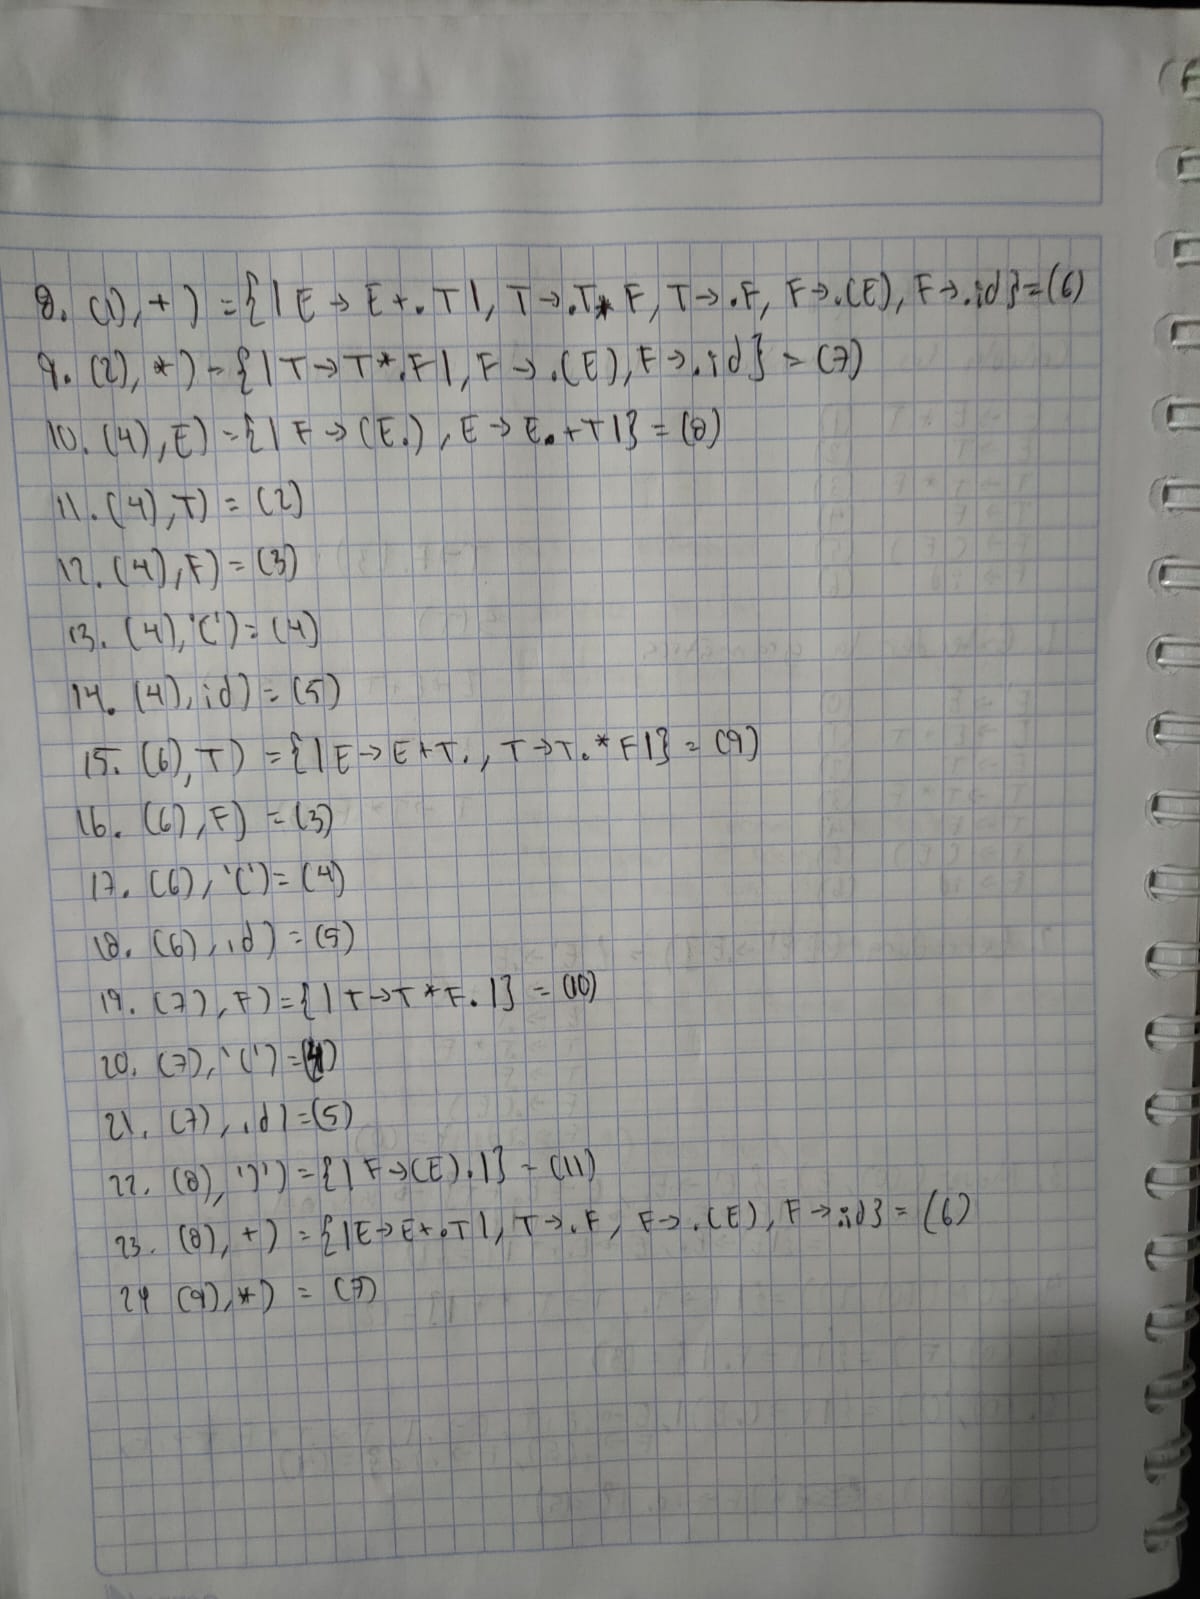 8. (1), +) = {|E → E+.T|, T→.T* F, T→.F, F→.(E), F→.id} = (6)
9. (2), *) = {|T→T*.F|, F→.(E), F→.id} = (7)
10. (4), E) = {|F→(E.), E→E.+T|} = (8)
11. (4), T) = (2)
12. (4), F) = (3)
13. (4), '(') = (4)
14. (4), id) = (5)
15. (6), T) = {|E→E+T., T→T.*F|} = (9)
16. (6), F) = (3)
17. (6), '(') = (4)
18. (6), id) = (5)
19. (7), F) = {|T→T*F.|} = (10)
20. (7), '(') = (4)
21. (7), id) = (5)
22. (8), ')') = {|F→(E).|} = (11)
23. (8), +) = {|E→E+.T|, T→.F, F→.(E), F→.id} = (6)
24 (9), *) = (7)